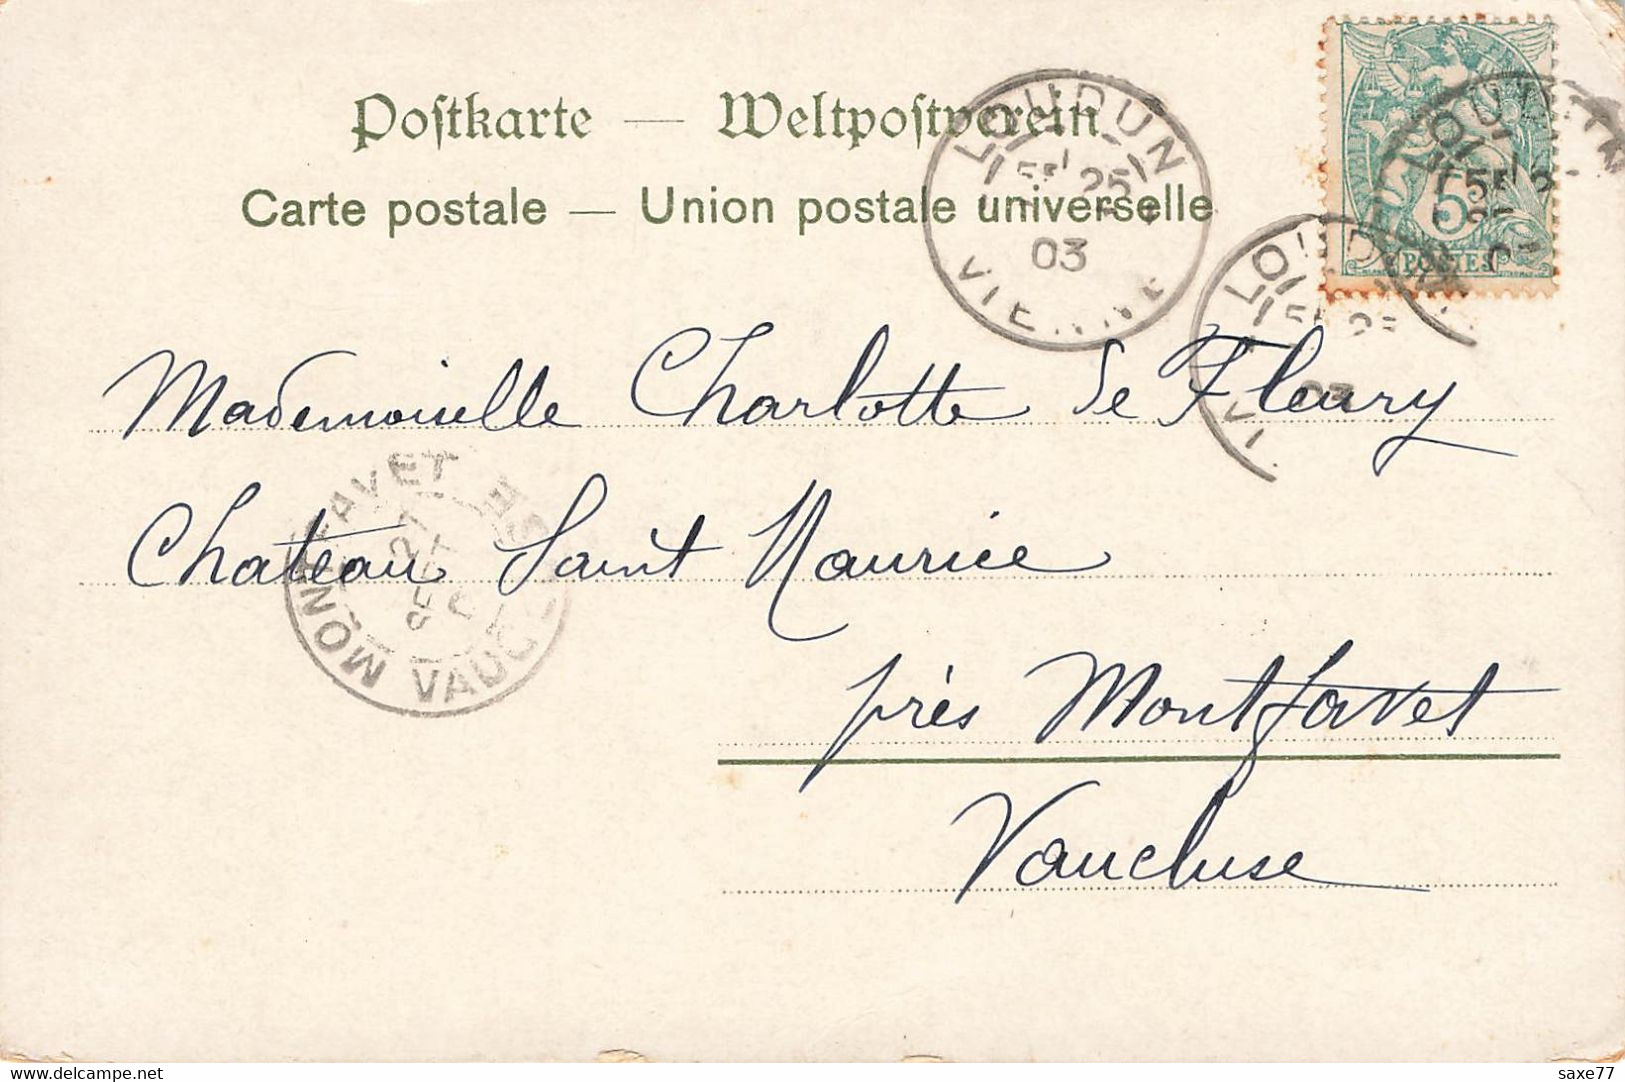 Postkarte — Weltpostverein
Carte postale — Union postale universelle
LOUDUN
25
03
VIENNE
5
POSTES
LOUDUN
03
LOUDUN
Mademoiselle Charlotte de Fleury
Chateau Saint Maurice
près Montfavet
Vaucluse
MONTFAVET
21
VAUCLUSE
delcampe.net
saxe77